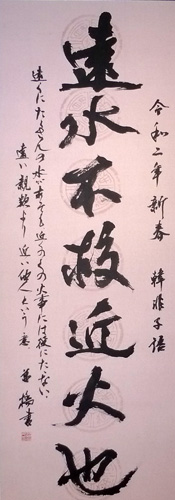 令和二年新春 韓非子語
遠水不救近火也
遠くにたくさんの水があっても近くのもの火事には役にたたない
遠い親類より近い他人という意